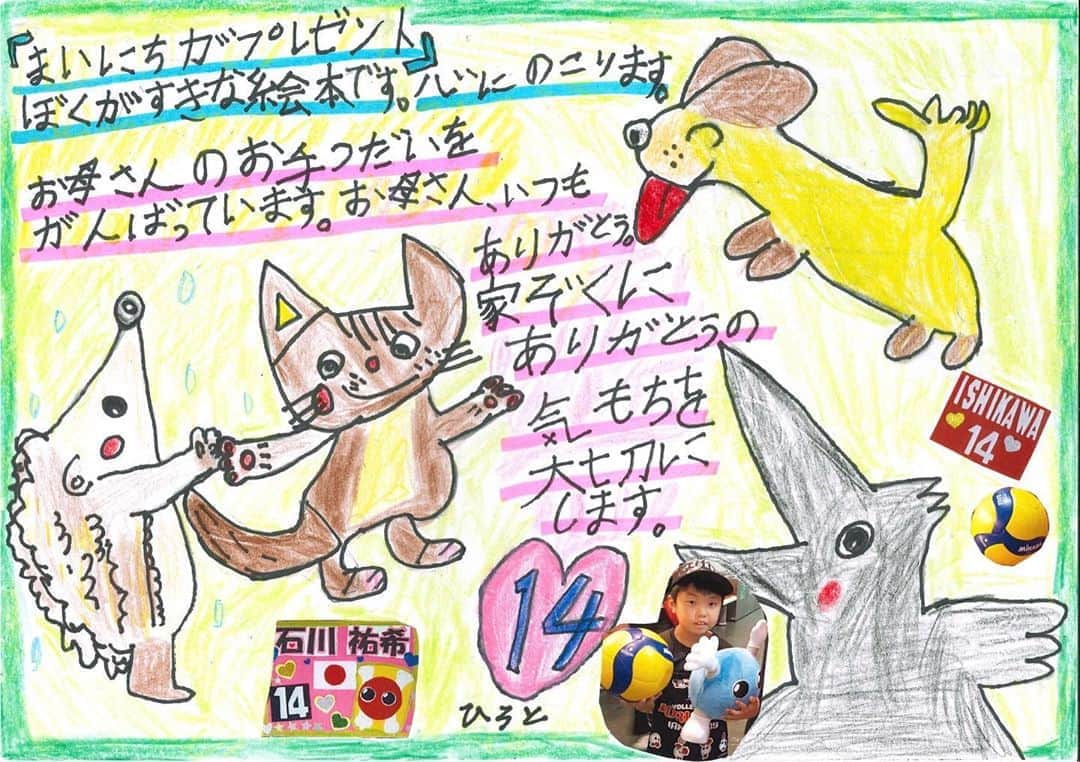 『まいにちがプレゼント』
ぼくがすきな絵本です。心にのこります。
お母さんのお手つだいを
がんばっています。お母さん、いつも
ありがとう。
家ぞくに
ありがとうの
気もちを
大切に
します。
ISHIKAWA
14
MIKASA
14
石川 祐希
14
ひろと